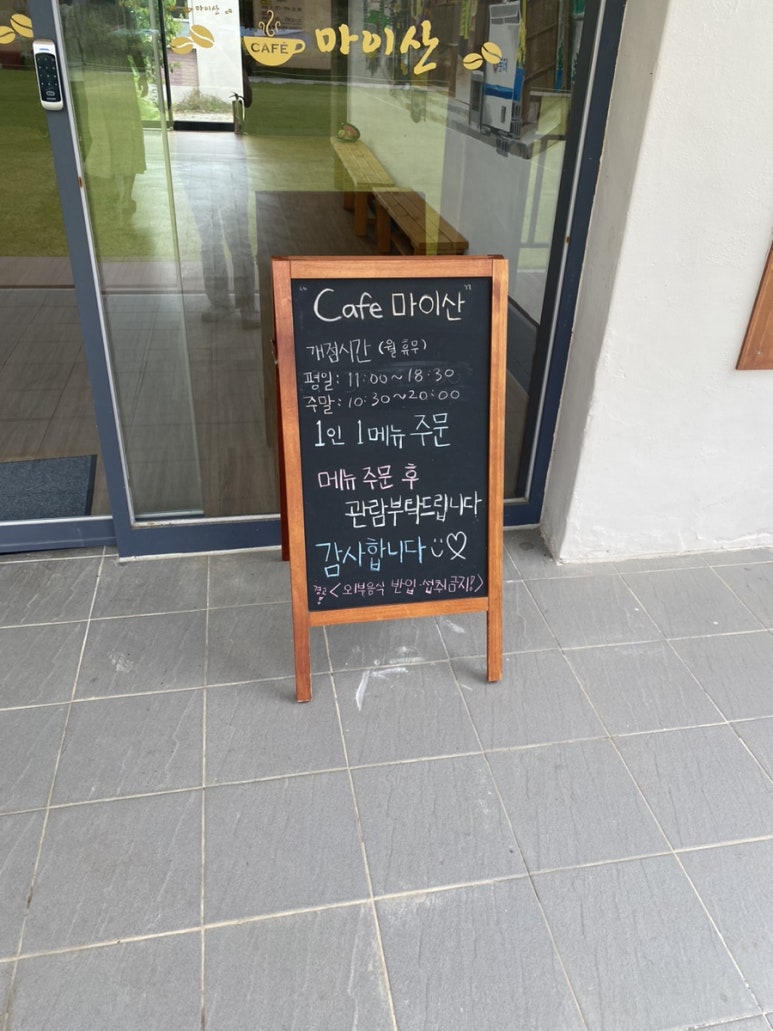 마이산
CAFÉ 마이산
"Cafe 마이산"
개점시간 (월 휴무)
평일: 11:00~18:30
주말: 10:30~20:00
1인 1메뉴 주문
메뉴 주문 후
관람부탁드립니다
감사합니다
경고! <외부음식 반입·섭취금지!>